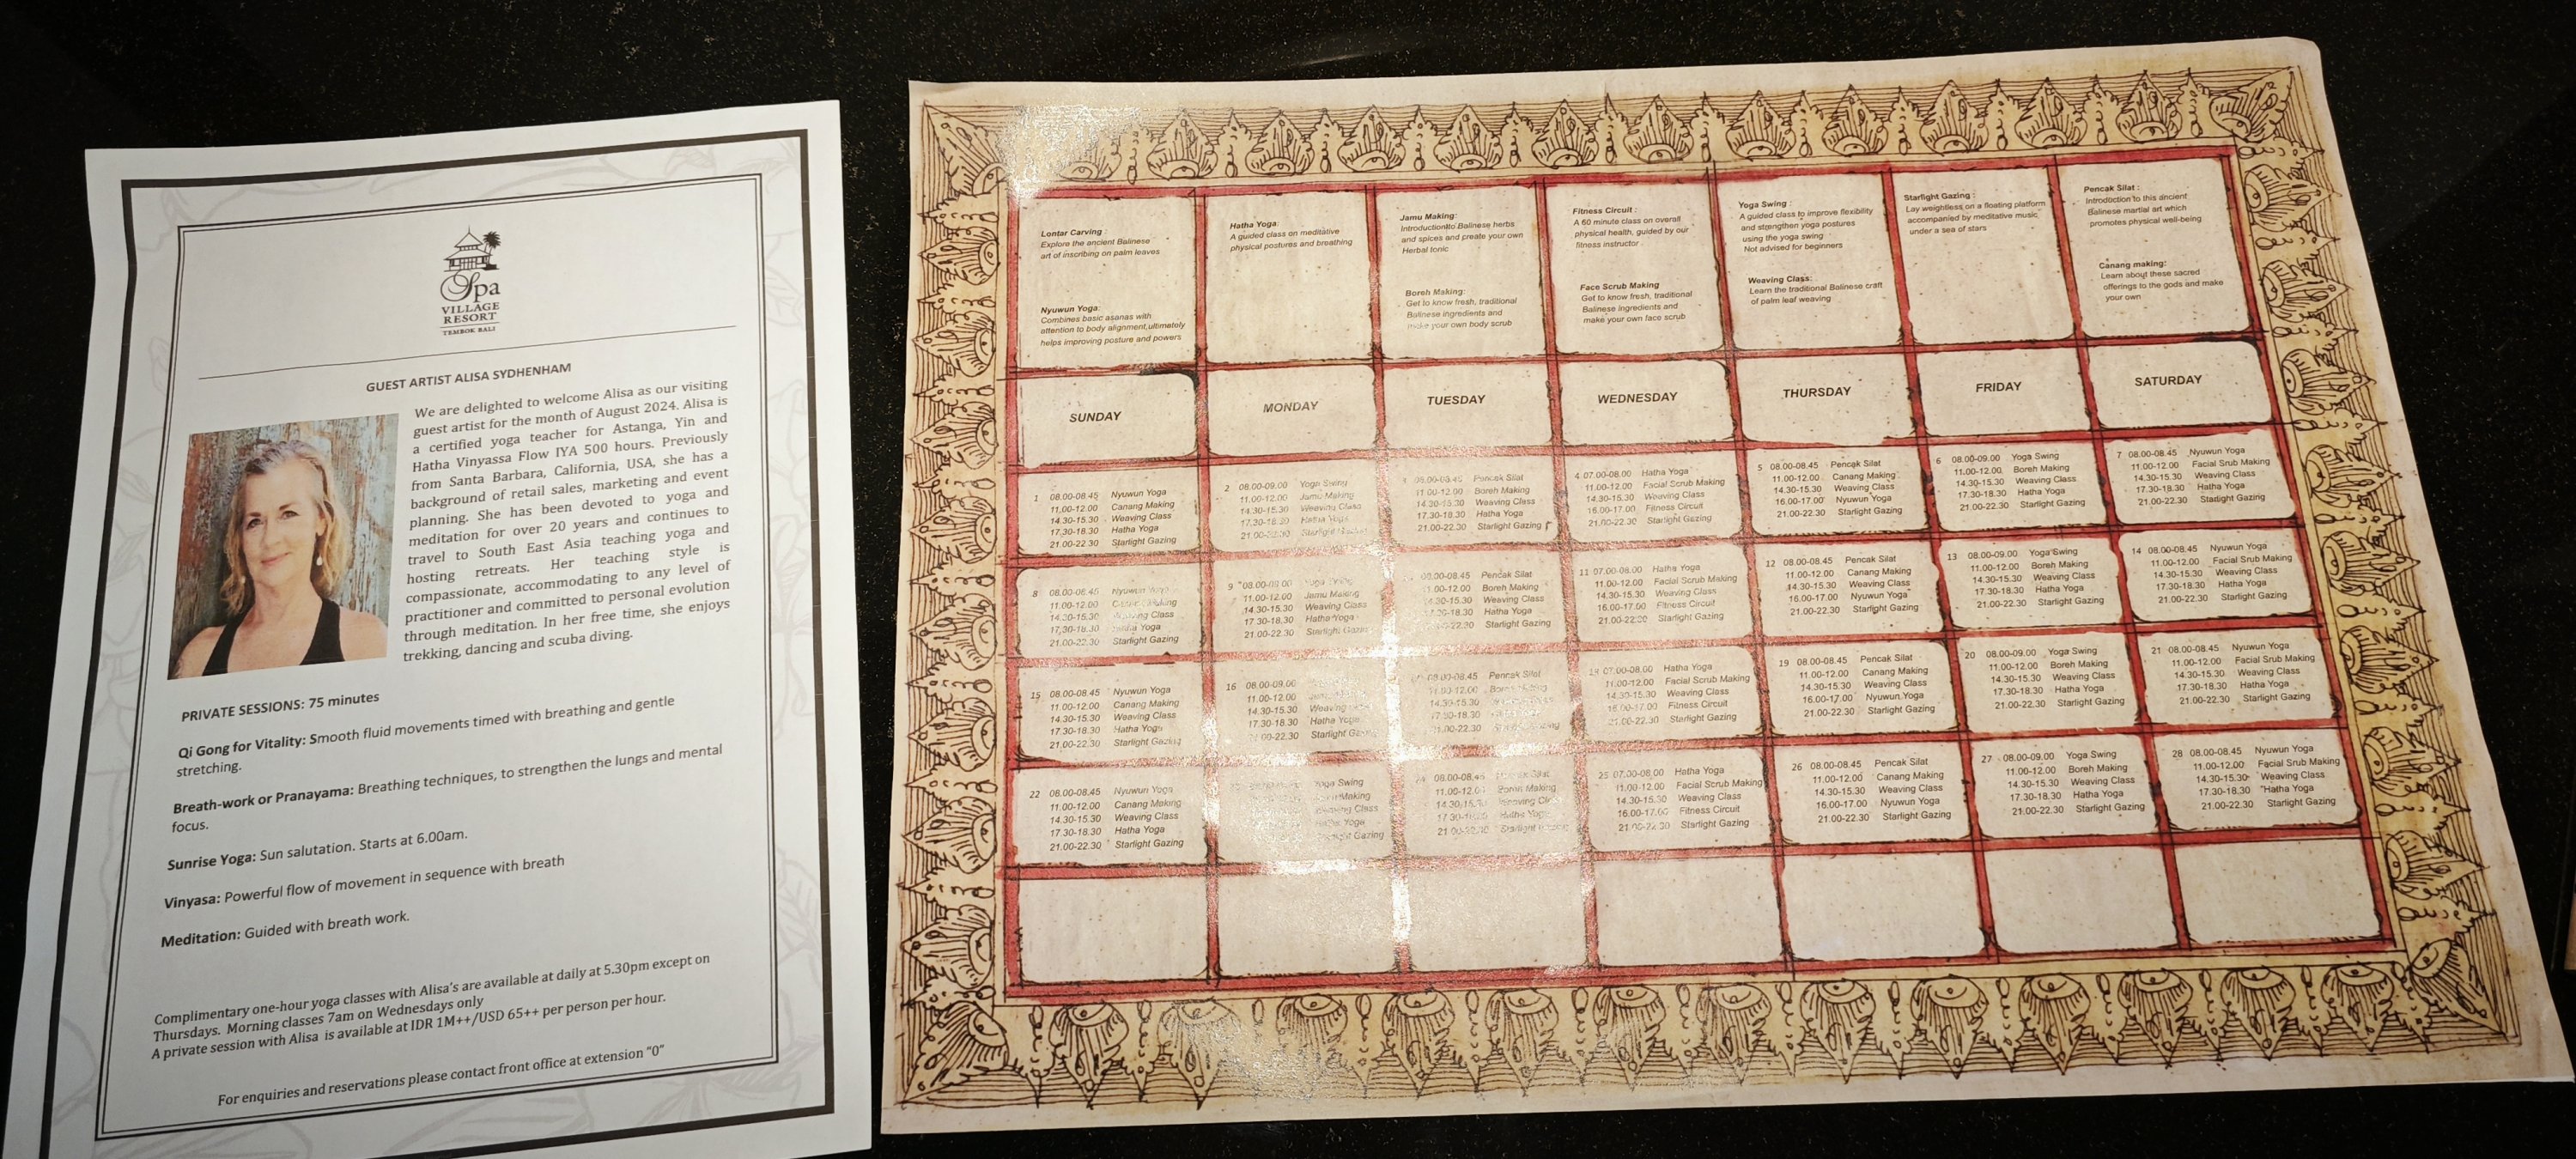 Spa
VILLAGE
RESORT
TEMBOK BALI
GUEST ARTIST ALISA SYDHENHAM
We are delighted to welcome Alisa as our visiting
guest artist for the month of August 2024. Alisa is
a certified yoga teacher for Astanga, Yin and
Hatha Vinyassa Flow IYA 500 hours. Previously
from Santa Barbara, California, USA, she has a
background of retail sales, marketing and event
planning. She has been devoted to yoga and
meditation for over 20 years and continues to
travel to South East Asia teaching yoga and
hosting retreats. Her teaching style is
compassionate, accommodating to any level of
practitioner and committed to personal evolution
through meditation. In her free time, she enjoys
trekking, dancing and scuba diving.
PRIVATE SESSIONS: 75 minutes
Qi Gong for Vitality: Smooth fluid movements timed with breathing and gentle
stretching.
Breath-work or Pranayama: Breathing techniques, to strengthen the lungs and mental
focus.
Sunrise Yoga: Sun salutation. Starts at 6.00am.
Vinyasa: Powerful flow of movement in sequence with breath
Meditation: Guided with breath work.
Complimentary one-hour yoga classes with Alisa's are available at daily at 5.30pm except on
Thursdays. Morning classes 7am on Wednesdays only
A private session with Alisa is available at IDR 1M++/USD 65++ per person per hour.
For enquiries and reservations please contact front office at extension "0"
Lontar Carving :
Explore the ancient Balinese
art of inscribing on palm leaves
Nyuwun Yoga:
Combines basic asanas with
attention to body alignment,ultimately
helps improving posture and powers
Hatha Yoga:
A guided class on meditative
physical postures and breathing
Jamu Making:
Introduction to Balinese herbs
and spices and create your own
Herbal tonic
Boreh Making:
Get to know fresh, traditional
Balinese ingredients and
make your own body scrub
Fitness Circuit :
A 60 minute class on overall
physical health, guided by our
fitness instructor
Face Scrub Making
Get to know fresh, traditional
Balinese ingredients and
make your own face scrub
Yoga Swing :
A guided class to improve flexibility
and strengthen yoga postures
using the yoga swing
Not advised for beginners
Weaving Class:
Learn the traditional Balinese craft
of palm leaf weaving
Starlight Gazing :
Lay weightless on a floating platform
accompanied by meditative music
under a sea of stars
Pencak Silat :
Introduction to this ancient
Balinese martial art which
promotes physical well-being
Canang making:
Learn about these sacred
offerings to the gods and make
your own
SUNDAY
MONDAY
TUESDAY
WEDNESDAY
THURSDAY
FRIDAY
SATURDAY
1 08.00-08.45 Nyuwun Yoga
11.00-12.00 Canang Making
14.30-15.30 Weaving Class
17.30-18.30 Hatha Yoga
21.00-22.30 Starlight Gazing
2 08.00-09.00 Yoga Swing
11.00-12.00 Jamu Making
14.30-15.30 Weaving Class
17.30-18.30 Hatha Yoga
21.00-22.30 Starlight Gazing
08.00-08.45 Pencak Silat
11.00-12.00 Boreh Making
14.30-15.30 Weaving Class
17.30-18.30 Hatha Yoga
21.00-22.30 Starlight Gazing
4 07.00-08.00 Hatha Yoga
11.00-12.00 Facial Scrub Making
14.30-15.30 Weaving Class
16.00-17.00 Fitness Circuit
21.00-22.30 Starlight Gazing
5 08.00-08.45 Pencak Silat
11.00-12.00 Canang Making
14.30-15.30 Weaving Class
16.00-17.00 Nyuwun Yoga
21.00-22.30 Starlight Gazing
6 08.00-09.00 Yoga Swing
11.00-12.00 Boreh Making
14.30-15.30 Weaving Class
17.30-18.30 Hatha Yoga
21.00-22.30 Starlight Gazing
7 08.00-08.45 Nyuwun Yoga
11.00-12.00 Facial Srub Making
14.30-15.30 Weaving Class
17.30-18.30 Hatha Yoga
21.00-22.30 Starlight Gazing
8 08.00-08.45 Nyuwun Yoga
11.00-12.00 Canang Making
14.30-15.30 Weaving Class
17.30-18.30 Hatha Yoga
21.00-22.30 Starlight Gazing
9 08.00-09.00 Yoga Swing
11.00-12.00 Jamu Making
14.30-15.30 Weaving Class
17.30-18.30 Hatha Yoga
21.00-22.30 Starlight Gazing
08.00-08.45 Pencak Silat
11.00-12.00 Boreh Making
14.30-15.30 Weaving Class
17.30-18.30 Hatha Yoga
21.00-22.30 Starlight Gazing
11 07.00-08.00 Hatha Yoga
11.00-12.00 Facial Scrub Making
14.30-15.30 Weaving Class
16.00-17.00 Fitness Circuit
21.00-22.30 Starlight Gazing
12 08.00-08.45 Pencak Silat
11.00-12.00 Canang Making
14.30-15.30 Weaving Class
16.00-17.00 Nyuwun Yoga
21.00-22.30 Starlight Gazing
13 08.00-09.00 Yoga Swing
11.00-12.00 Boreh Making
14.30-15.30 Weaving Class
17.30-18.30 Hatha Yoga
21.00-22.30 Starlight Gazing
14 08.00-08.45 Nyuwun Yoga
11.00-12.00 Facial Srub Making
14.30-15.30 Weaving Class
17.30-18.30 Hatha Yoga
21.00-22.30 Starlight Gazing
15 08.00-08.45 Nyuwun Yoga
11.00-12.00 Canang Making
14.30-15.30 Weaving Class
17.30-18.30 Hatha Yoga
21.00-22.30 Starlight Gazing
16 08.00-09.00
11.00-12.00
14.30-15.30 Weaving
17.30-18.30 Hatha Yoga
21.00-22.30 Starlight Gazing
08.00-08.45 Pencak Silat
11.00-12.00 Boreh
14.30-15.30
17.30-18.30
21.00-22.30
18 07.00-08.00 Hatha Yoga
11.00-12.00 Facial Scrub Making
14.30-15.30 Weaving Class
16.00-17.00 Fitness Circuit
21.00-22.30 Starlight Gazing
19 08.00-08.45 Pencak Silat
11.00-12.00 Canang Making
14.30-15.30 Weaving Class
16.00-17.00 Nyuwun Yoga
21.00-22.30 Starlight Gazing
20 08.00-09.00 Yoga Swing
11.00-12.00 Boreh Making
14.30-15.30 Weaving Class
17.30-18.30 Hatha Yoga
21.00-22.30 Starlight Gazing
21 08.00-08.45 Nyuwun Yoga
11.00-12.00 Facial Srub Making
14.30-15.30 Weaving Class
17.30-18.30 Hatha Yoga
21.00-22.30 Starlight Gazing
22 08.00-08.45 Nyuwun Yoga
11.00-12.00 Canang Making
14.30-15.30 Weaving Class
17.30-18.30 Hatha Yoga
21.00-22.30 Starlight Gazing
Yoga Swing
Making
Class
Yoga
Gazing
24 08.00-08.45 Pencak Silat
11.00-12.00 Boreh Making
14.30-15.30 Weaving Class
17.30-18.30 Hatha Yoga
21.00-22.30 Starlight Gazing
25 07.00-08.00 Hatha Yoga
11.00-12.00 Facial Scrub Making
14.30-15.30 Weaving Class
16.00-17.00 Fitness Circuit
21.00-22.30 Starlight Gazing
26 08.00-08.45 Pencak Silat
11.00-12.00 Canang Making
14.30-15.30 Weaving Class
16.00-17.00 Nyuwun Yoga
21.00-22.30 Starlight Gazing
27 08.00-09.00 Yoga Swing
11.00-12.00 Boreh Making
14.30-15.30 Weaving Class
17.30-18.30 Hatha Yoga
21.00-22.30 Starlight Gazing
28 08.00-08.45 Nyuwun Yoga
11.00-12.00 Facial Srub Making
14.30-15.30 Weaving Class
17.30-18.30 Hatha Yoga
21.00-22.30 Starlight Gazing